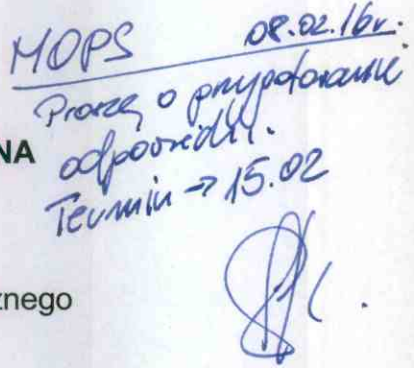 MOPS 08.02.16r.
Proszę o przygotowanie
NA odpowiedzi.
Termin → 15.02
znego